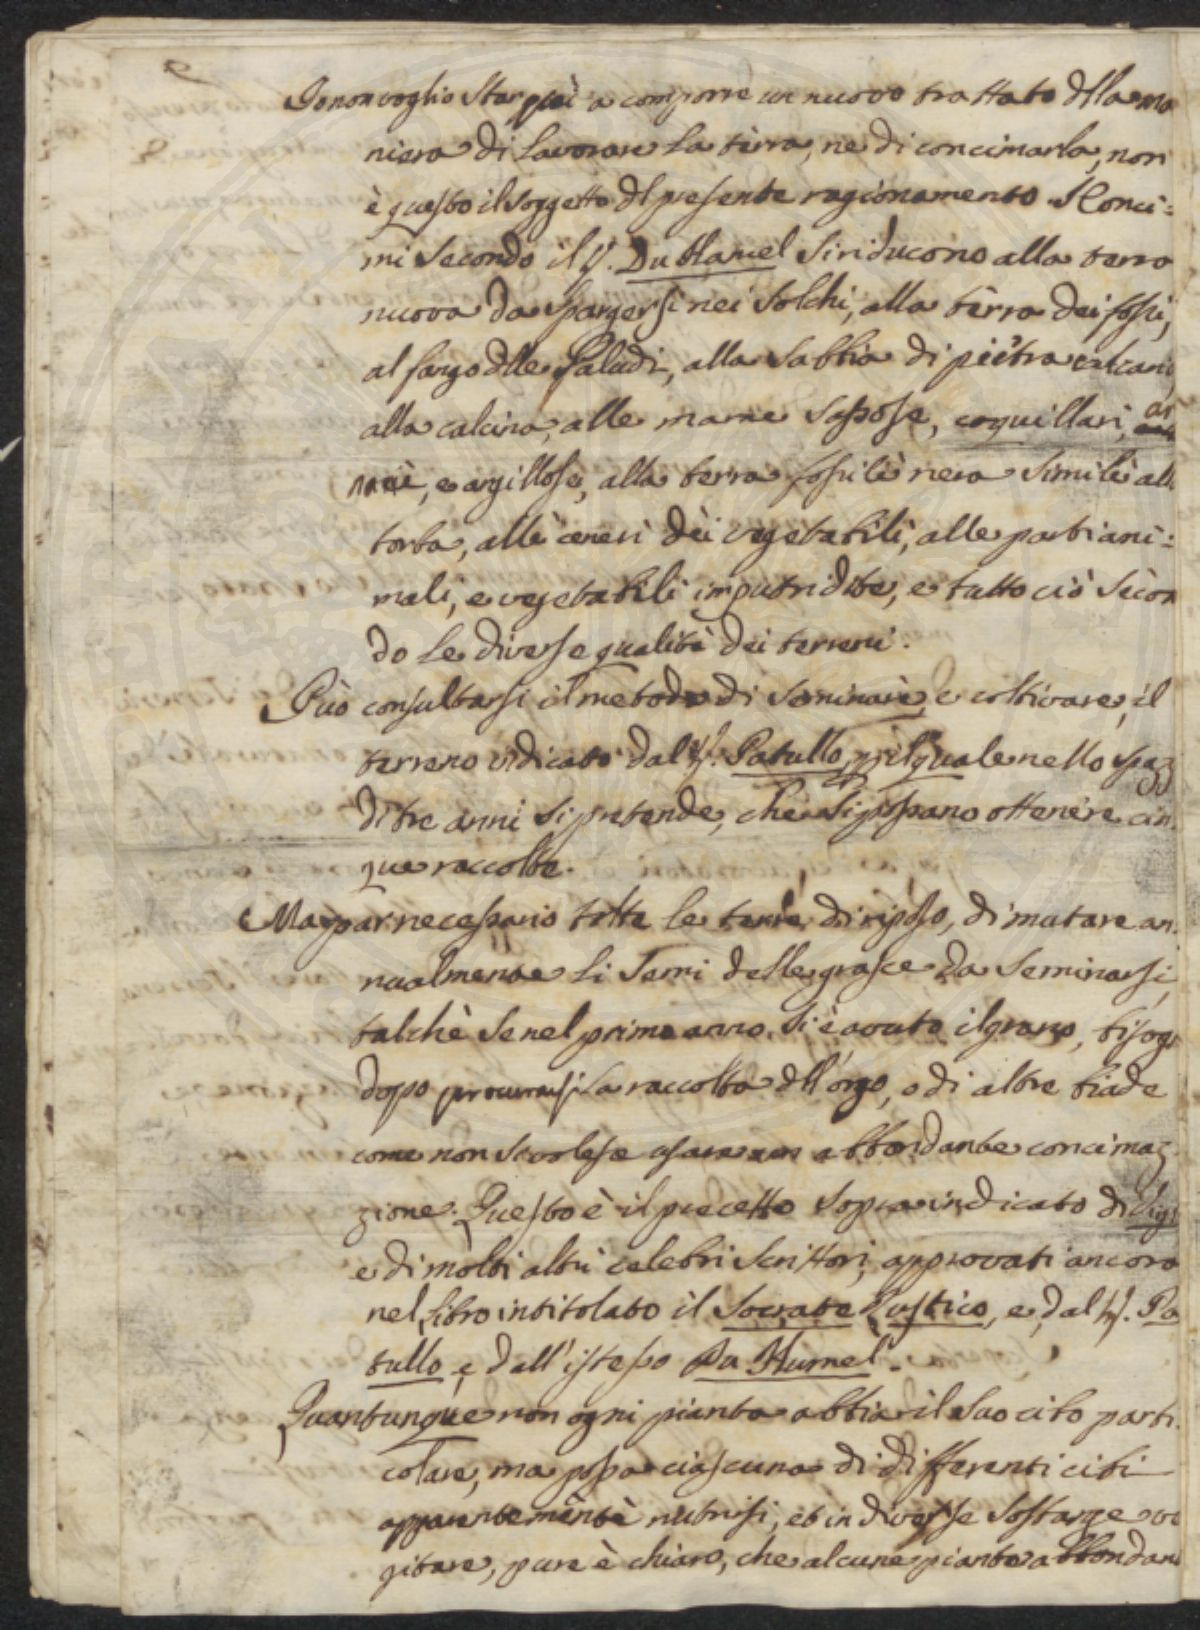 Io non voglio star quì a comporre un nuovo trattato dlla ma
niera di lavorare la terra, ne di concimarla, non
è questo il soggetto dl presente ragionamento. I Conci=
mi secondo il S. Du Hamel si riducono alla terra
nuova da spargersi nei solchi, alla terra dei fossi,
al fango dlle Paludi, alla sabbia di pietra calcaria
alla calcina, alle marne sassose, coquillari, ar
nose, e argillose, alla terra fossile nera simile alla
torba, alle ceneri dei vegetabili, alle parti ani=
mali, e vegetabili imputridite, e tutto ciò secon
do le diverse qualità dei terreni.
Può consultarsi il metodo di seminare, e coltivare, il
terreno indicato dal S. Patullo, pel quale nello spaz
di tre anni si pretende, che si possano ottenere cin
que raccolte.
Ma par necessario tolte le terre di riposo, di mutare an
nualmente li semi delle grasce da seminarsi,
talchè se nel primo anno si è avuto il grano, bisog
dopo procurarsi la raccolta dll'orzo, o di altre biade
come non si volesse usare un abbondante concimaz
zione. Questo è il precetto sopraindicato di
e di molti altri celebri scrittori, approvati ancora
nel libro intitolato il Socrate Rustico, e dal S. Pa
tullo, e dall'istesso Du Hamel.
Quantunque non ogni pianta abbia il suo cibo parti
colare, ma possa ciascuna di differenti cibi
apparentemente nutrirsi, et in diverse sostanze ve
gitare, pure è chiaro, che alcune piante abbondan